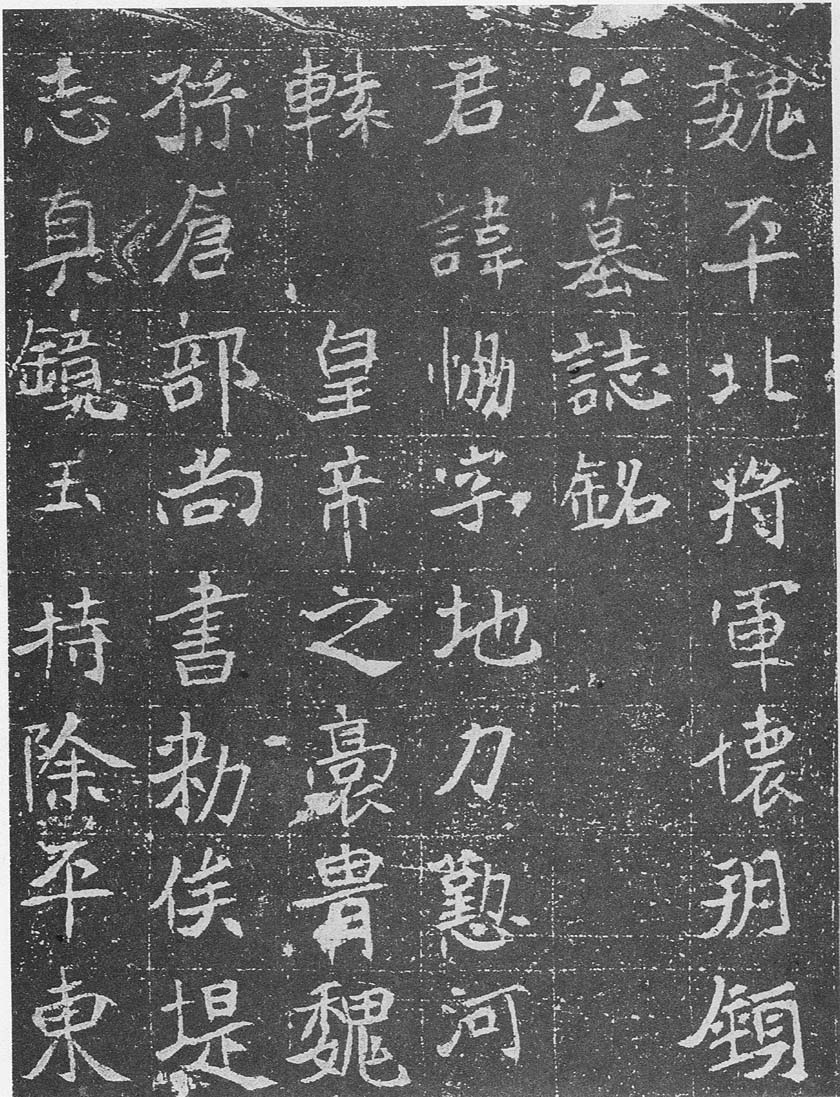 魏平北将軍懷朔鎮
公墓誌銘
君諱恊字地力懃河
轅皇帝之裔胄魏
孫倉部尚書勅俟堤
志真鏡玉持除平東